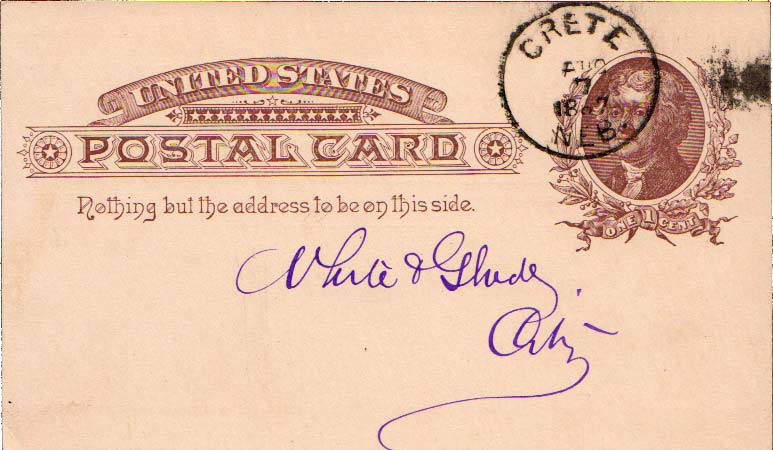 UNITED STATES
POSTAL CARD
Nothing but the address to be on this side.
CRETE
AUG
7
NEB.
ONE 1 CENT
White & Glade,
City